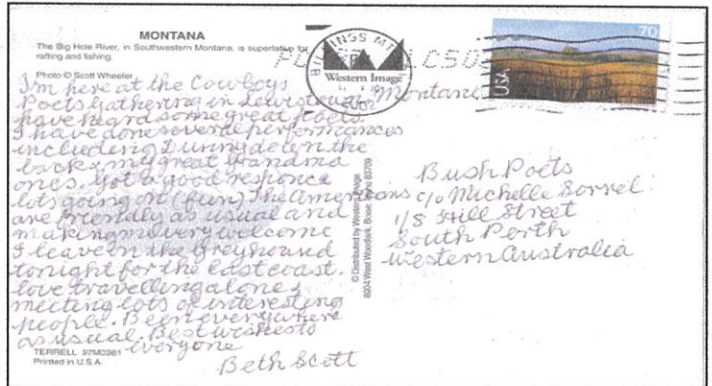 MONTANA
The Big Hole River, in Southwestern Montana, is superlative for
rafting and fishing.
Photo © Scott Wheeler
I'm here at the Cowboys
Poets Gathering in Lewistown Montana
have heard some great Poets
I have done several performances
including Dunny de in the
back & my great Grandma
ones. Got a good responce
lots going on (fun) The Americans
are friendly as usual and
making me very welcome
I leave in the greyhound
tonight for the East coast.
love travelling alone &
meeting lots of interesting
people. Been everywhere
as usual. Best wishes to
everyone
Beth Scott
TERRELL 97M0361
Printed in U.S.A.
© Distributed by Western Image
8004 West Woodlark, Boise, Idaho 83709
BILLINGS MT
Western Image
70
USA
Bush Poets
c/o Michelle Sorrel
1/8 Hill Street
South Perth
Western Australia